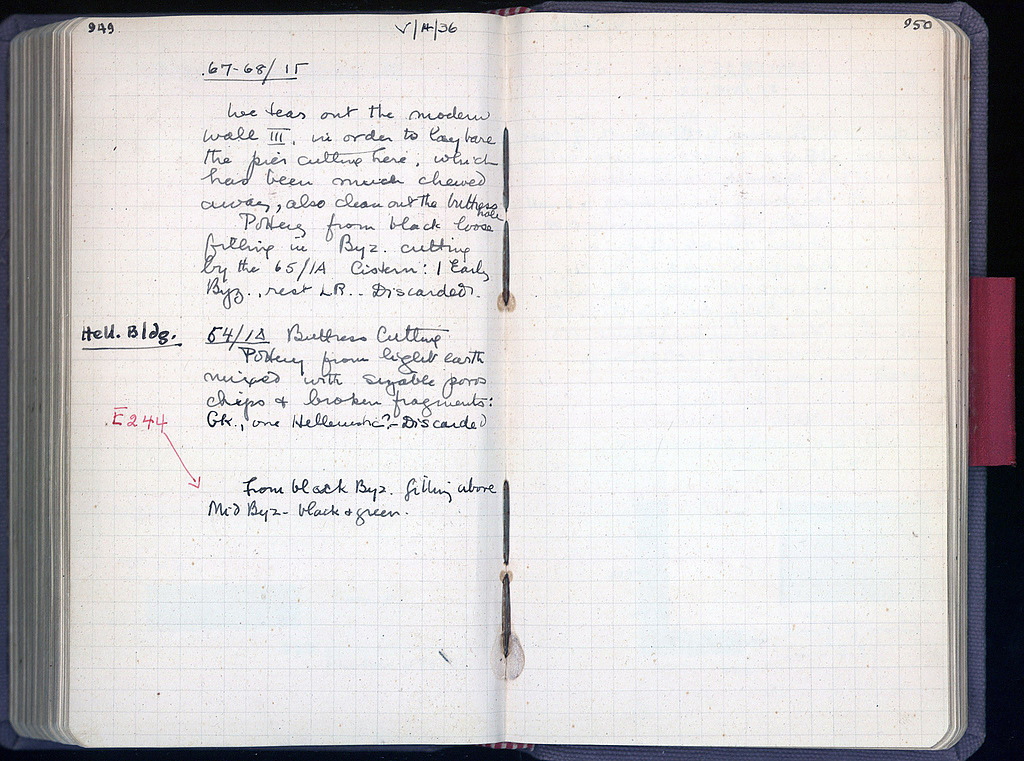 949
V/4/36
950
67-68/ΙΓ
We tear out the modern
wall III, in order to lay bare
the pier cutting here, which
had been much chewed
away, also clean out the buttress
hole
Pottery from black loose
filling in Byz. cutting
by the 65/ΙΑ Cistern: 1 Early
Byz., rest LR.. Discarded.
Hell. Bldg.
54/ΙΔ Buttress Cutting
Pottery from light earth
mixed with sizable poros
chips & broken fragments:
GK., one Hellenistic? - Discarded
E244
From black Byz. filling above
Mid Byz - black & green.